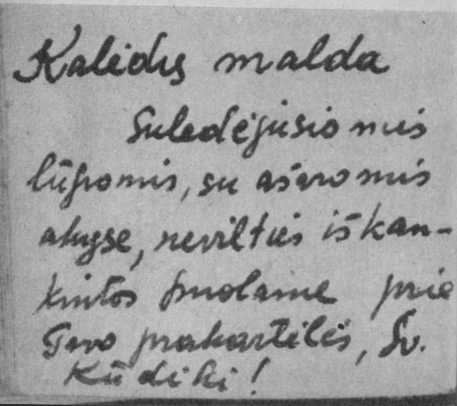 Kalėdų malda
Suledėjusiomis
lūpomis, su ašaromis
akyse, nevilties iškan-
kintos puolame prie
Tavo prakartėlės, Šv.
Kūdiki!